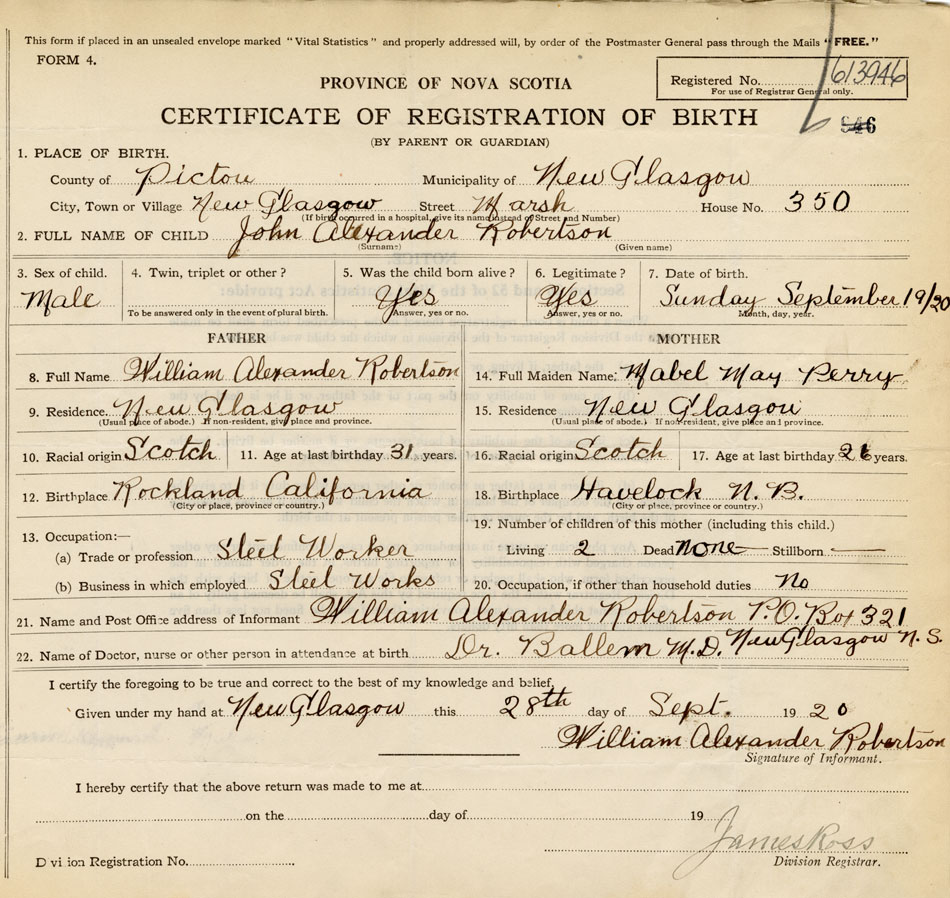 This form if placed in an unsealed envelope marked "Vital Statistics" and properly addressed will, by order of the Postmaster General pass through the Mails "FREE."
FORM 4.
PROVINCE OF NOVA SCOTIA
Registered No. 613946
For use of Registrar General only.
CERTIFICATE OF REGISTRATION OF BIRTH
946
(BY PARENT OR GUARDIAN)
1. PLACE OF BIRTH.
County of Pictou Municipality of New Glasgow
City, Town or Village New Glasgow Street Marsh House No. 350
(If birth occurred in a hospital, give its name instead of Street and Number)
2. FULL NAME OF CHILD John Alexander Robertson
(Surname) (Given name)
3. Sex of child. 4. Twin, triplet or other? 5. Was the child born alive? 6. Legitimate? 7. Date of birth.
Male Yes Yes Sunday September 19/20
To be answered only in the event of plural birth. Answer, yes or no. Answer, yes or no. Month, day, year.
FATHER MOTHER
8. Full Name William Alexander Robertson 14. Full Maiden Name: Mabel May Perry
9. Residence. New Glasgow 15. Residence New Glasgow
(Usual place of abode.) If non-resident, give place and province. (Usual place of abode.) If non-resident, give place and province.
10. Racial origin Scotch 11. Age at last birthday 31 years. 16. Racial origin Scotch 17. Age at last birthday 26 years.
12. Birthplace Rockland California 18. Birthplace Havelock N.B.
(City or place, province or country.) (City or place, province or country.)
13. Occupation:— 19. Number of children of this mother (including this child.)
(a) Trade or profession Steel Worker Living 2 Dead None Stillborn —
(b) Business in which employed Steel Works 20. Occupation, if other than household duties No
21. Name and Post Office address of Informant William Alexander Robertson P.O. Box 321
New Glasgow N.S.
22. Name of Doctor, nurse or other person in attendance at birth Dr. Ballem M.D.
I certify the foregoing to be true and correct to the best of my knowledge and belief.
Given under my hand at New Glasgow this 28th day of Sept. 1920
William Alexander Robertson
Signature of Informant.
I hereby certify that the above return was made to me at
on the day of 19
James Ross
Division Registrar.
Division Registration No.